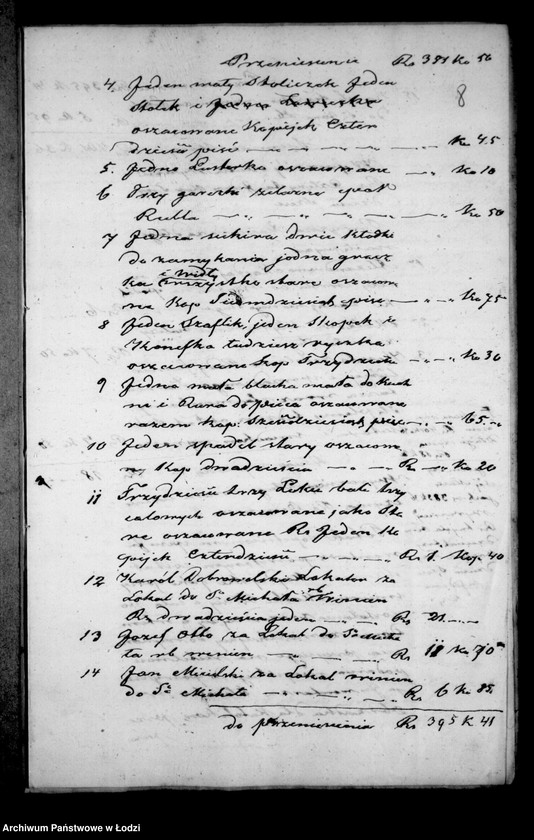 Przeniesienie Rs 351 Ko 56
8
4 Jeden mały Stoliczek Jeden
Stołek i Jedna
oszacowane Kopiejek Czter
dzieści pięć Ko 45
5. Jedno Lusterko oszacowane Ko 10
6 Trzy garnki żelazne pół
Rubla Ko 50
7 Jedna siekira dwie Kłódki
do zamykania jedna grac
ka i widły wszystko stare oszacowa
ne Kop Siedmdziesiąt pięć Ko 75
8 Jeden Szaflik, jeden Skopek i
Konefka tudzież rynka
oszacowane Kop Trzydzieści Ko 30
9 Jedna mała blacha mała do Kuch
ni i Rura do Pieca oszacowane
razem Kop. Sześćdziesiąt pięć 65.
10 Jeden szpadel stary oszacowa
ny Kop dwadzieścia Rs Ko 20
11 Trzydzieści trzy bali trzy
calowych oszacowane jako Sta
re oszacowane Rs Jeden Ko
piejek Czterdzieści Rs 1. Kop. 40
12 Karol Dobrowolski Lokator za
Lokal do St Michała winien
Rs dwadzieścia jeden Rs 21.
13 Jozef Otto za Lokal do St Micha
ła rb winien Rs 11 Ko 70
14 Jan za Lokal winien
do St Michała Rs 6 Ko 85.
do przeniesienia Rs 395 K 41
Archiwum Państwowe w Łodzi